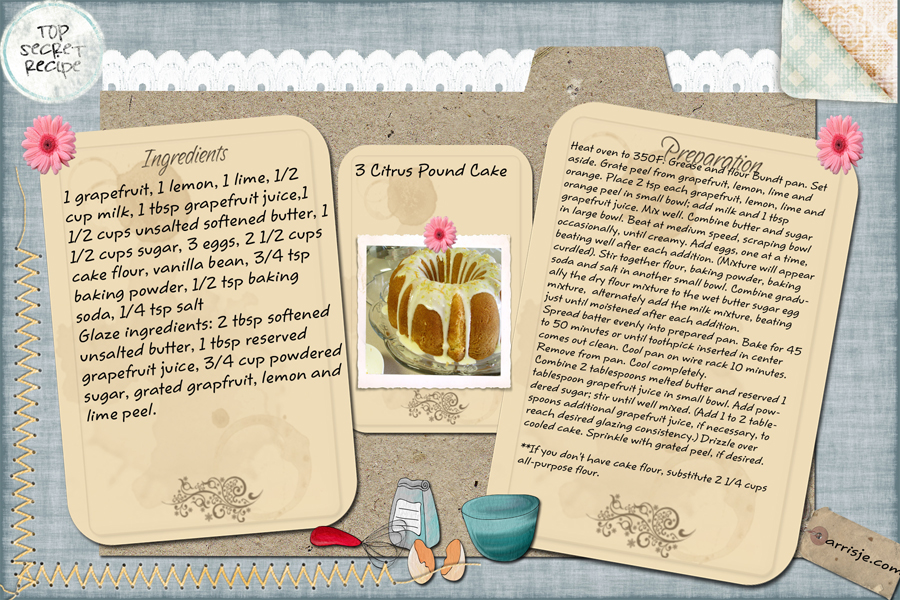 TOP
SECRET
RECIPE
Ingredients
1 grapefruit, 1 lemon, 1 lime, 1/2
cup milk, 1 tbsp grapefruit juice,1
1/2 cups unsalted softened butter, 1
1/2 cups sugar, 3 eggs, 2 1/2 cups
cake flour, vanilla bean, 3/4 tsp
baking powder, 1/2 tsp baking
soda, 1/4 tsp salt
Glaze ingredients: 2 tbsp softened
unsalted butter, 1 tbsp reserved
grapefruit juice, 3/4 cup powdered
sugar, grated grapfruit, lemon and
lime peel.
3 Citrus Pound Cake
Preparation
Heat oven to 350F. Grease and flour Bundt pan. Set
aside. Grate peel from grapefruit, lemon, lime and
orange. Place 2 tsp each grapefruit, lemon, lime and
orange peel in small bowl; add milk and 1 tbsp
grapefruit juice. Mix well. Combine butter and sugar
in large bowl. Beat at medium speed, scraping bowl
occasionally, until creamy. Add eggs, one at a time,
beating well after each addition. (Mixture will appear
curdled). Stir together flour, baking powder, baking
soda and salt in another small bowl. Combine gradu-
ally the dry flour mixture to the wet butter sugar egg
mixture, alternately add the milk mixture, beating
just until moistened after each addition.
Spread batter evenly into prepared pan. Bake for 45
to 50 minutes or until toothpick inserted in center
comes out clean. Cool pan on wire rack 10 minutes.
Remove from pan. Cool completely.
Combine 2 tablespoons melted butter and reserved 1
tablespoon grapefruit juice in small bowl. Add pow-
dered sugar; stir until well mixed. (Add 1 to 2 table-
spoons additional grapefruit juice, if necessary, to
reach desired glazing consistency.) Drizzle over
cooled cake. Sprinkle with grated peel, if desired.
**If you don't have cake flour, substitute 2 1/4 cups
all-purpose flour.
arrisje.com